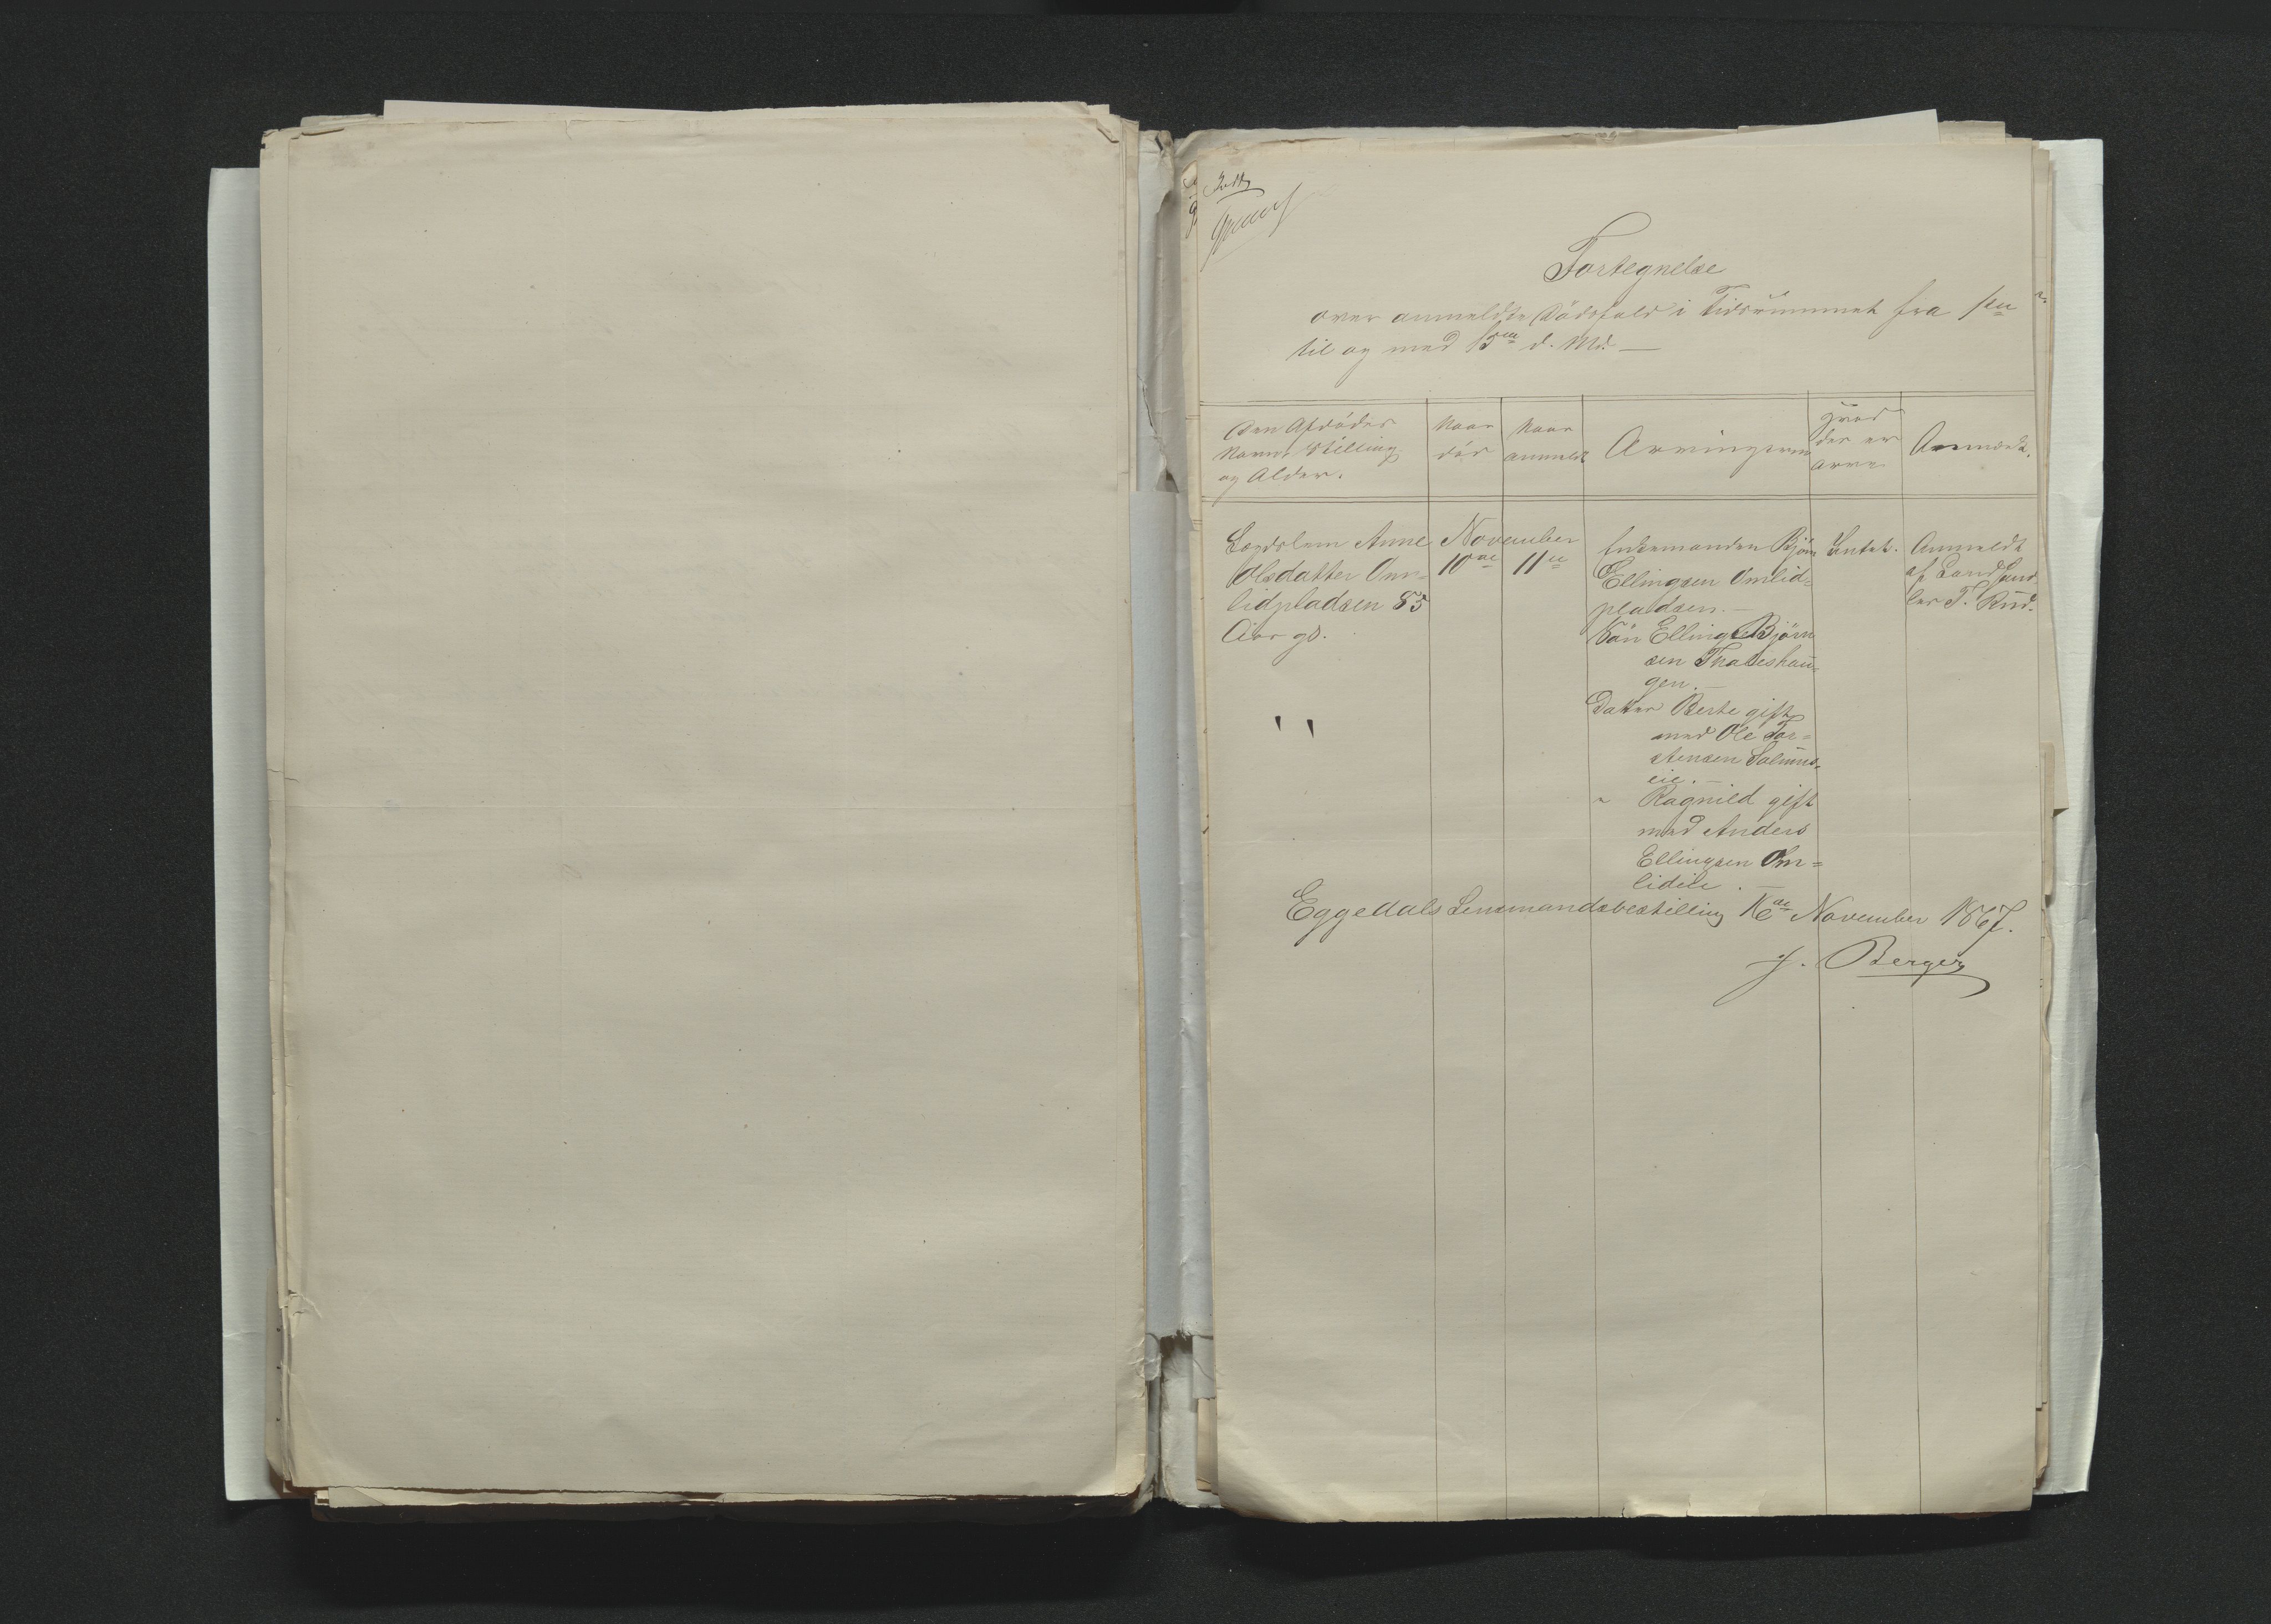 Fortegnelse
over anmeldte Dödsfald i Tidsrummet fra 1ste
til og med 15de d. Md. —
Den Afdödes
Navn, Stilling
og Alder.
Naar
död
Naar
anmeldt
Arvingerne
Hvad
der er
arve
Anmærk.
Lægdslem Anne
Olsdatter Om-
lidpladsen 83
Aar gl.
November
10de
11te
Enkemanden Björn
Ellingsen Omlid-
pladsen. —
Sön Elling Björn
sen Thabeshau-
gen. —
Datter Berte gift
med Ole Tor-
stensen Solmus-
eie. —
" Ragnild gift
med Anders
Ellingsen Om=
lideie. —
Intet.
Anmeldt
af Landhand-
ler T. Rud.
Eggedals Lensmandsbestilling 16de November 1867.
J. Berger